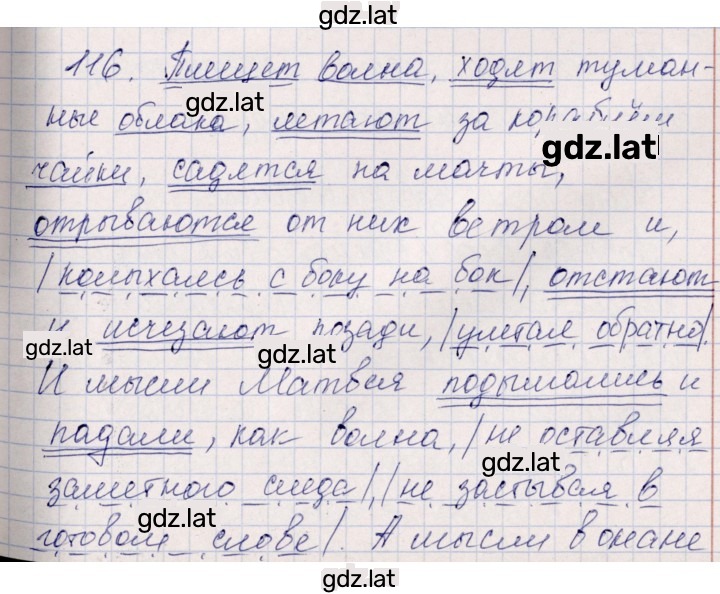 gdz.lat
116. Плещет волна, ходят туман-
ные облака, летают за кораблём
gdz.lat
gdz.lat
чайки, садятся на мачты,
отрываются от них ветром и,
|колыхаясь с боку на бок|, отстают
и исчезают позади, |улетая обратно|.
gdz.lat
gdz.lat
И мысли Матвея подымались и
падали, как волна, |не оставляя
gdz.lat
заметного следа|, |не застывая в
gdz.lat
готовом слове|. А мысли в океане
gdz.lat